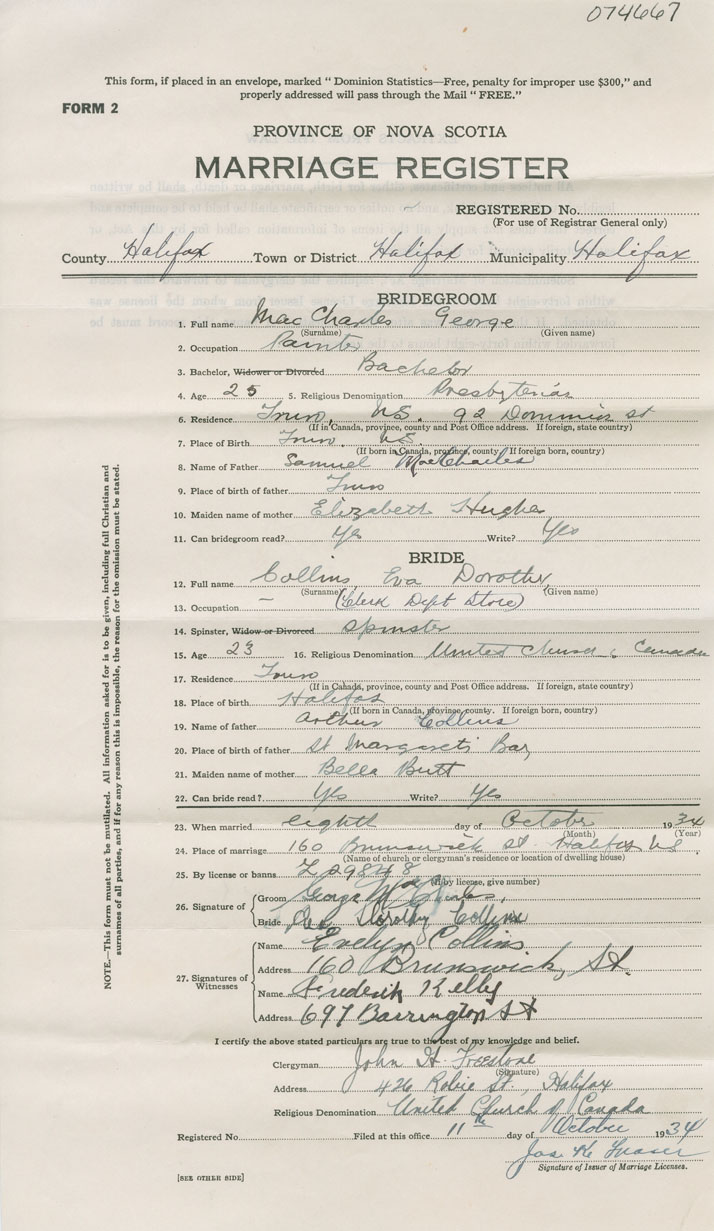 074667
This form, if placed in an envelope, marked " Dominion Statistics—Free, penalty for improper use $300," and
properly addressed will pass through the Mail " FREE."
FORM 2
PROVINCE OF NOVA SCOTIA
MARRIAGE REGISTER
REGISTERED No.
(For use of Registrar General only)
County Halifax Town or District Halifax Municipality Halifax
BRIDEGROOM
1. Full name MacCharles George
(Surname) (Given name)
2. Occupation Painter
3. Bachelor, Widower or Divorced Bachelor
4. Age 25 5. Religious Denomination Presbyterian
6. Residence Truro, N.S. 92 Dominion St
(If in Canada, province, county and Post Office address. If foreign, state country)
7. Place of Birth Truro. N.S.
(If born in Canada, province, county. If foreign born, country)
8. Name of Father Samuel MacCharles
9. Place of birth of father Truro
10. Maiden name of mother Elizabeth Hughes
11. Can bridegroom read? Yes Write? Yes
BRIDE
12. Full name Collins, Eva Dorothy,
(Surname) (Given name)
13. Occupation — (Clerk Dept Store)
14. Spinster, Widow or Divorced Spinster
15. Age 23 16. Religious Denomination United Church, Canada
17. Residence Truro
(If in Canada, province, county and Post Office address. If foreign, state country)
18. Place of birth Halifax
(If born in Canada, province, county. If foreign born, country)
19. Name of father Arthur Collins
20. Place of birth of father St Margarets Bay
21. Maiden name of mother Bella Butt
22. Can bride read? Yes Write? Yes
23. When married eighth day of October 1934
(Month) (Year)
24. Place of marriage 160 Brunswick St. Halifax N.S.
(Name of church or clergyman's residence or location of dwelling house)
25. By license or banns L 29848
(If by license, give number)
26. Signature of Groom George MacCharles,
Bride Dorothy Collins
27. Signatures of Witnesses
Name Evelyn Collins
Address 160 Brunswick, St.
Name Frederick Kelly
Address 697 Barrington St
I certify the above stated particulars are true to the best of my knowledge and belief.
Clergyman John H. Freestone
(Signature)
Address 426 Robie St., Halifax
Religious Denomination United Church of Canada
Registered No. Filed at this office 11th day of October 1934
Jas. K. Fraser
Signature of Issuer of Marriage Licenses.
[SEE OTHER SIDE]
NOTE.—This form must not be mutilated. All information asked for is to be given, including full Christian and
surnames of all parties, and if for any reason this is impossible, the reason for the omission must be stated.